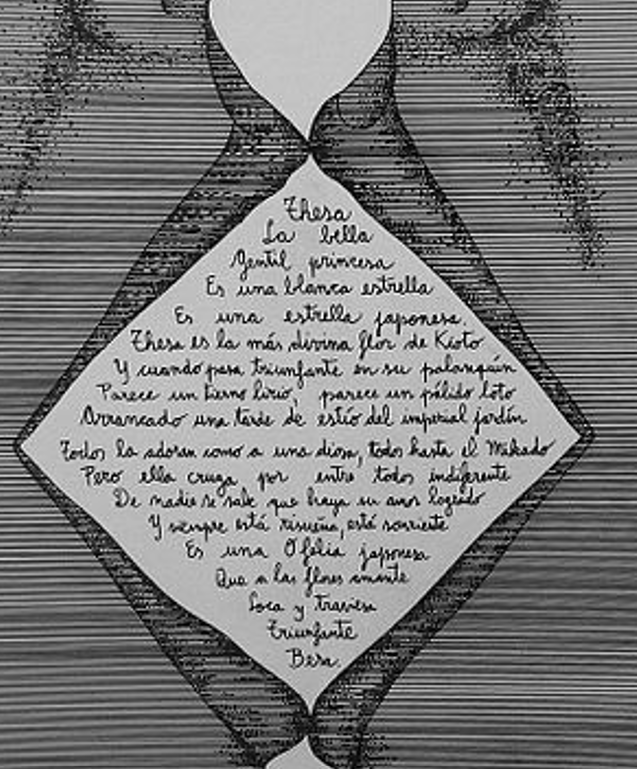 Thesa
La bella
Gentil princesa
Es una blanca estrella
Es una estrella japonesa.
Thesa es la más divina flor de Kioto
Y cuando pasa triunfante en su palanquín
Parece un tierno lirio, parece un pálido loto
Arrancado una tarde de estío del imperial jardín
Todos la adoran como a una diosa, todos hasta el Mikado
Pero ella cruza por entre todos indiferente
De nadie se sabe que haya su amor logrado
Y siempre está risueña, está sonriente
Es una Ofelia japonesa
Que a las flores amante
Loca y traviesa
Triunfante
Besa.